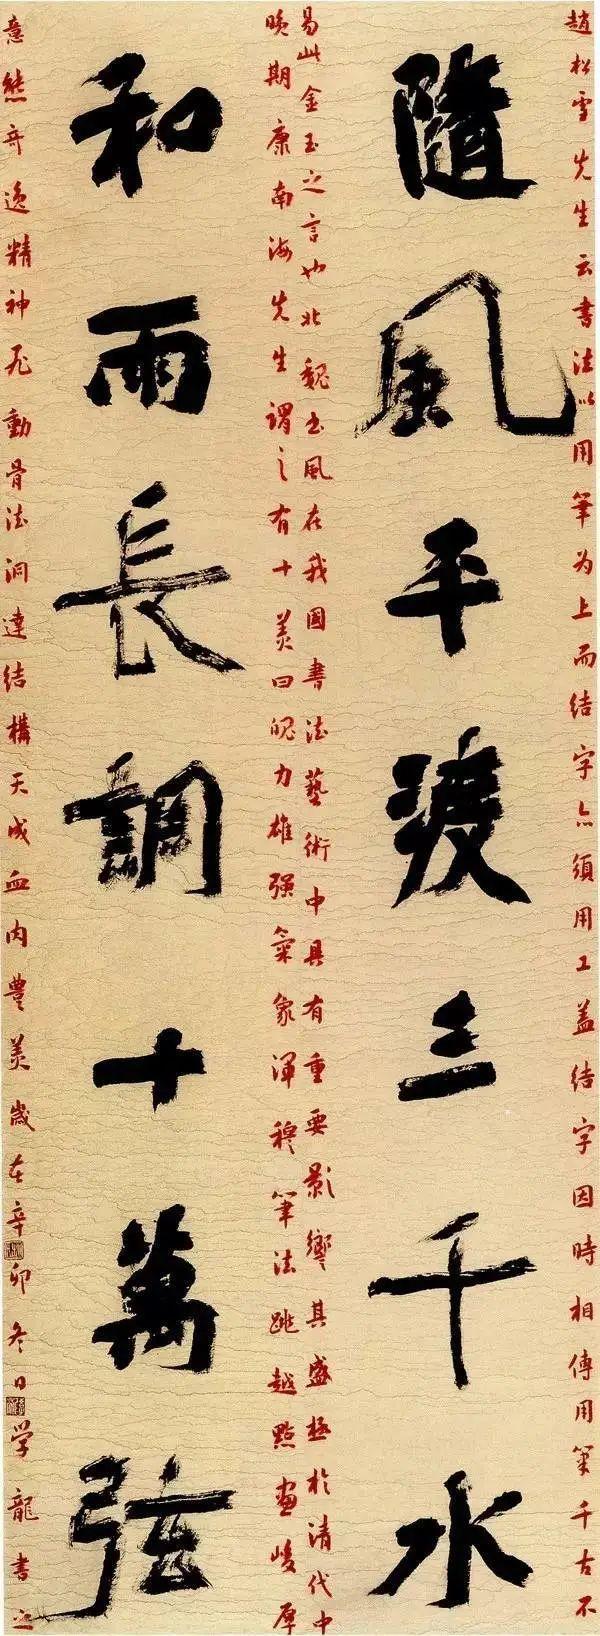 趙松雪先生云書法以用筆为上而结字亦須用工盖结字因時相傳用筆千古不
隨風平渡三千水
易此金玉之言也北魏书風在我國書法藝術中具有重要影響其盛極於清代中
晚期康南海先生謂之有十美曰魄力雄强氣象渾穆筆法跳越點畫峻厚
和雨長調十萬弦
意態奇逸精神飛動骨法洞達结構天成血肉豐美歲在辛卯冬日学龍書之